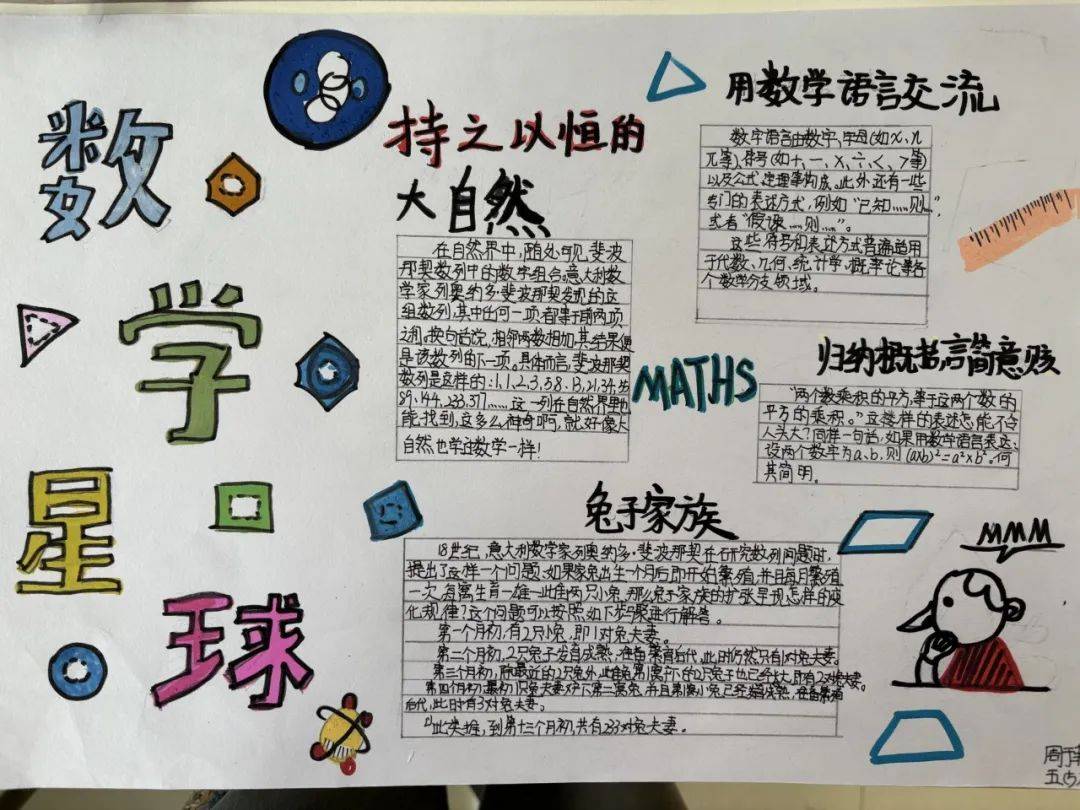 数
学
星
球
持之以恒的
大自然
在自然界中,随处可见斐波
那契数列中的数字组合。意大利数
学家列奥纳多·斐波那契发现的这
组数列,其中任何一项都等于前两项
之和,换句话说,相邻两数相加,其结果便
是该数列的下一项。具体而言,斐波那契
数列是这样的:1,1,2,3,5,8,13,21,34,55
89,144,233,377,……这一列在自然界里也
能找到,这多么神奇啊,就好像大
自然也学过数学一样!
用数学语言交流
数学语言由数字、字母(如x、n
π等)、符号(如+、一、×、÷、<、>等)
以及公式、定理等构成。此外还有一些
专门的表述方式,例如"已知……则…",
或者"假设……则……"。
这些符号和表述方式普遍适用
于代数、几何、统计学、概率论等各
个数学分支领域。
MATHS
归纳概括言简意赅
"两个数乘积的平方,等于这两个数的
平方的乘积。"这样的表述怎能不令
人头大?同样一句话,如果用数学语言表达:
设两个数字为a、b,则(a×b)²=a²×b²。何
其简明。
兔子家族
18世纪,意大利数学家列奥纳多·斐波那契在研究数列问题时,
提出了这样一个问题:如果家兔出生一个月后即开始繁殖,并且每月繁殖
一次,每窝生育一雄一雌两只小兔,那么兔子家族的扩张呈现怎样的变
化规律?这个问题可以按照如下步骤进行解答。
第一个月初,有2只小兔,即1对兔夫妻。
第二个月初,2只兔子发育成熟,准备繁育后代,此时仍然只有1对兔夫妻。
第三个月初,除最近的2只兔外,此雌兔第1窝产下的2只兔子也已经长大,即有2对兔夫妻。
第四个月初,最初1只兔夫妻产下第二窝兔,并且第1窝小兔已经發成熟,准备繁育
后代,此时有3对兔夫妻。
以此类推,到第十三个月初,共有233对兔夫妻。
MMM